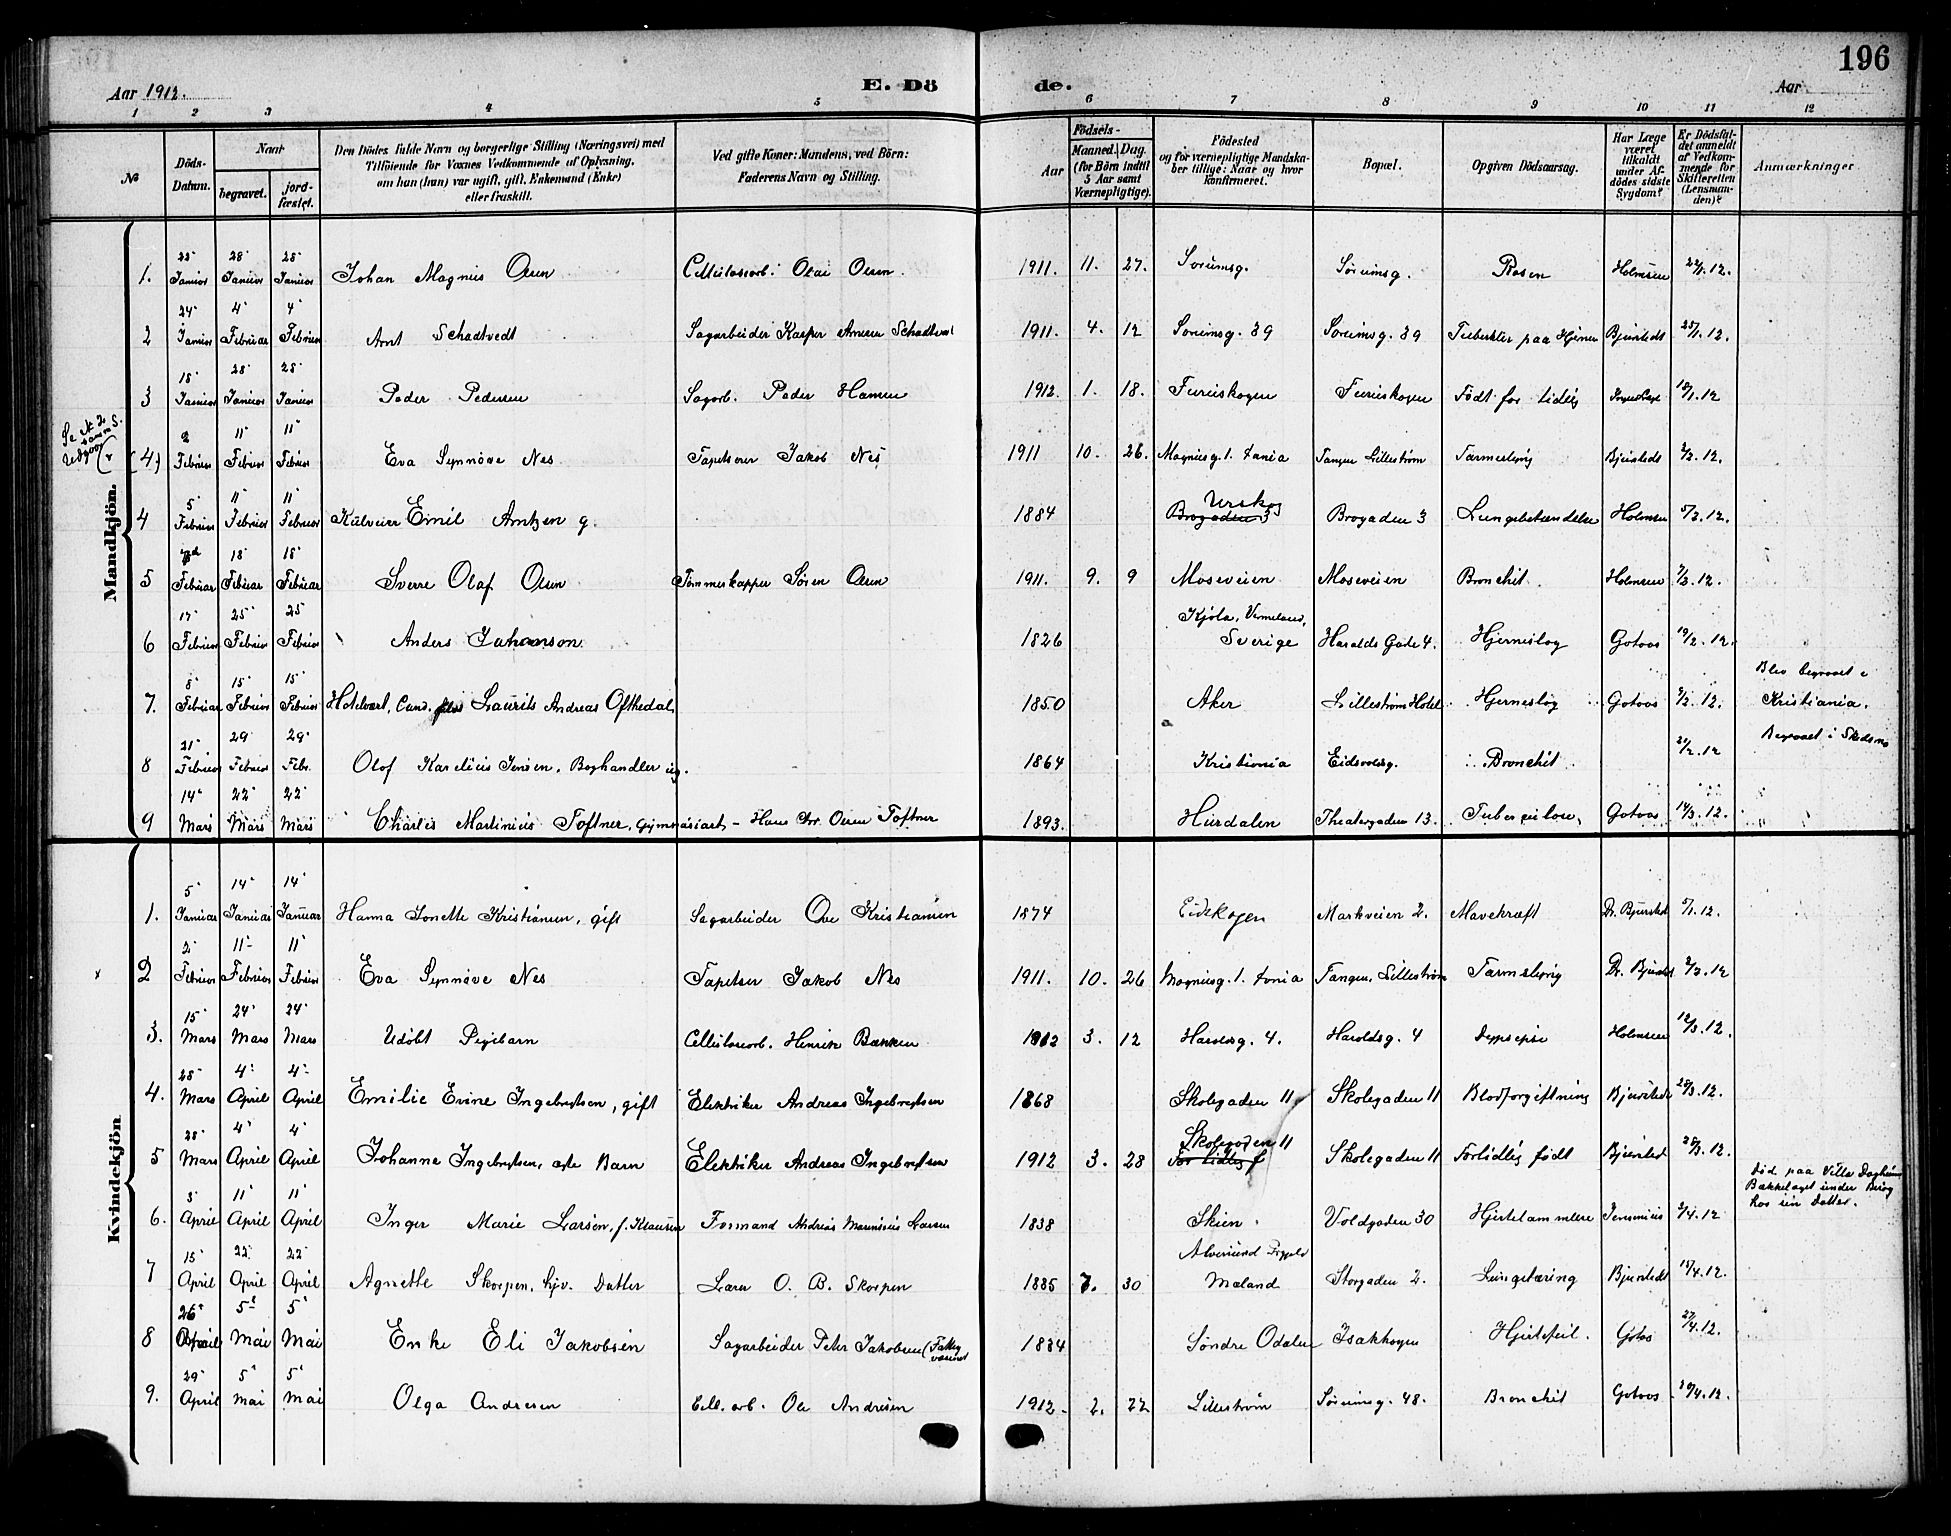 196
Aar 1912.
E. Dö
de.
Aar
1 2 3 4 5 6 7 8 9 10 11 12
№
Döds-Datum.
Naar
begravet.
jord-fæstet.
Den Dödes fulde Navn og borgerlige Stilling (Næringsvei) med
Tilföiende for Voxnes Vedkommende af Oplysning,
om han (hun) var ugift, gift, Enkemand (Enke)
eller fraskilt.
Ved gifte Koner: Mandens, ved Börn:
Faderens Navn og Stilling.
Födsels-
Aar
Maaned.
Dag.
(for Börn indtil
5 Aar samt
Værnepligtige).
Födested
og for værnepligtige Mandska-
ber tillige: Naar og hvor
konfirmeret.
Bopæl.
Opgiven Dödsaarsag.
Har Læge
været
tilkaldt
under Af-
dödes sidste
Sygdom?
Er Dödsfal-
det anmeldt
af Vedkom-
mende for
Skifteretten
(Lensman-
den)?
Anmærkninger
Mandkjön.
1. Januar 28 Januar Januar Johan Magnus Olsen Cellulosearb. Olai Olsen. 1911. 11. 27. Sorumsg. Sörumsg. Rosen Holmsen 22/1. 12.
2 24 Januar 4 Februar 4 Februar Arnt Schadtvedt Sagarbeider Kasper Schadtvedt 1911. 4. 12 Sorumsg. 39 Sorumsg. 39 paa Hjernen Bjerstedt 25/1. 12.
3 18 Januar 28 Januar 28 Januar Peder Pedersen Sagarb. Peder Hansen 1912. 1. 18. Furuskogen Furuskogen Födt for tidlig 18/1. 12
Se № 2
samme S.
(4) 2 Februar 11 Februar 11 Februar Eva Synnöve Nes Tapetserer Jakob Nes 1911 10. 26. Magnusg. 1. Tangen Lilleström Tarmslyng Bjerstedt 2/2. 12.
4 5 Februar 11 Februar 11 Februar Emil Arntzen g. 1884 Urskog
Brogaden 3 Brogaden 3 Lungebetændelse Holmsen 5/2. 12.
5 Februar 18 Februar 18 Februar Sverre Olaf Olsen Tömmerkapper Sören Olsen 1911. 9. 9 Moseveien Moseveien Bronchit. Holmsen 7/2. 12.
6 17 Februar 25 Februar 25 Februar Anders Johanson 1826 Vermeland,
Sverige Haralds Gade 4. Hjerneslag Gotaas 19/2. 12.
7. 8 Februar 15 Februar 15 Februar Hotelvært, Cand. Laurits Andreas Ofthedal, 1850 Aker Lilleström Hotel Hjerneslag Gotaas 9/2. 12. Blev begravet i
Kristiania.
8 21 Februar 29 Februar 29 Febr. Olaf Karelius Jensen, Boghandler ug. 1864 Kristiania Eidsvoldsg. Bronchit 21/2. 12 Begravet i Skedsmo
9 14 Mars 22 Mars 22 Mars Charles Martinius Toftner, Gymnasiast - Hans Chr. Olsen Toftner 1893. Hurdalen Theatergaden 13. Tuberculose, Gotaas 14/3. 12.
Kvindekjön
1. 5 Januar 14 Januar 14 Januar Hanna Jonette Kristiansen, gift Sagarbeider Ove Kristiansen 1874 Eidskogen Markveien 2. Mavekræft Dr. Bjerstedt 5/1. 12.
x 2 2 Februar 11 Februar 11 Februar Eva Synnöve Nes Tapetser Jakob Nes 1911. 10. 26 Magnusg. 1. Tangen, Lilleström Tarmslyng Dr. Bjerstedt 2/2. 12
3. 15 Mars 24 Mars 24 Mars Udöbt Pigebarn Cellulosearb. Henrik Bakken 1912 3. 12 Haraldsg. 4. Haraldsg. 4 Holmsen 12/3. 12.
4. 28 Mars 4 April 4 April Emilie Evine Ingebrigtsen, gift Elektriker Andreas Ingebrigtsen 1868 Skolegaden 11 Skolegaden 11 Blodforgiftning Bjerstedt 28/3. 12.
5 28 Mars 4 April 4 April Johanne Ingebrigtsen, ægte Barn Elektriker Andreas Ingebrigtsen 1912 3. 28 Skolegaden 11
For tidlig f Skolegaden 11 Fortidlig födt Bjerstedt 28/3. 12.
6. 3 April 11 April 11 April Inger Marie Larsen, f. Klausen Formand Andreas Larsen 1838 Skien. Voldgaden 30 Hjertelammelse 3/4. 12 Död paa Villa
Bækkelaget under Besög
hos sin Datter.
7 15 April 22 April 22 April Agnethe Skorpen, hjv. Datter Lærer O. B. Skorpen 1885 7. 30 Alversund
Mæland Storgaden 2. Lungetæring Bjerstedt 15/4. 12.
8 26 April 5 Mai 5 Mai Enke Eli Jakobsen Sagarbeider Peter Jakobsen 1834 Söndre Odalen Isakhagen Hjertefeil. Gotaas 27/4. 12.
9. 29 April 5 Mai 5 Mai Olga Andresen Cell. arb. Ole Andresen 1912. 2. 22 Lilleström Sörumsg. 48. Bronchit Gotaas 29/4. 12.